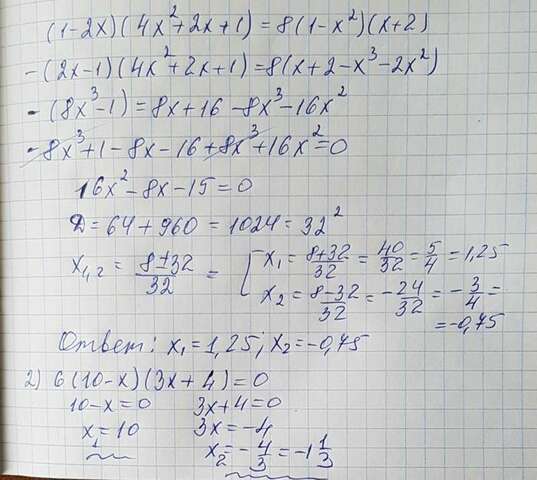 (1-2x)(4x²+2x+1)=8(1-x²)(x+2)
-(2x-1)(4x²+2x+1)=8(x+2-x³-2x²)
-(8x³-1)=8x+16-8x³-16x²
-8x³+1-8x-16+8x³+16x²=0
16x²-8x-15=0
D=64+960=1024=32²
x₁,₂=8±32/32=[x₁=8+32/32=40/32=5/4=1,25
x₂=8-32/32=-24/32=-3/4=
=-0,75
Ответ: x₁=1,25; x₂=-0,75
2) 6(10-x)(3x+4)=0
10-x=0 3x+4=0
x₁=10 3x=-4
x₂=-4/3=-1 1/3